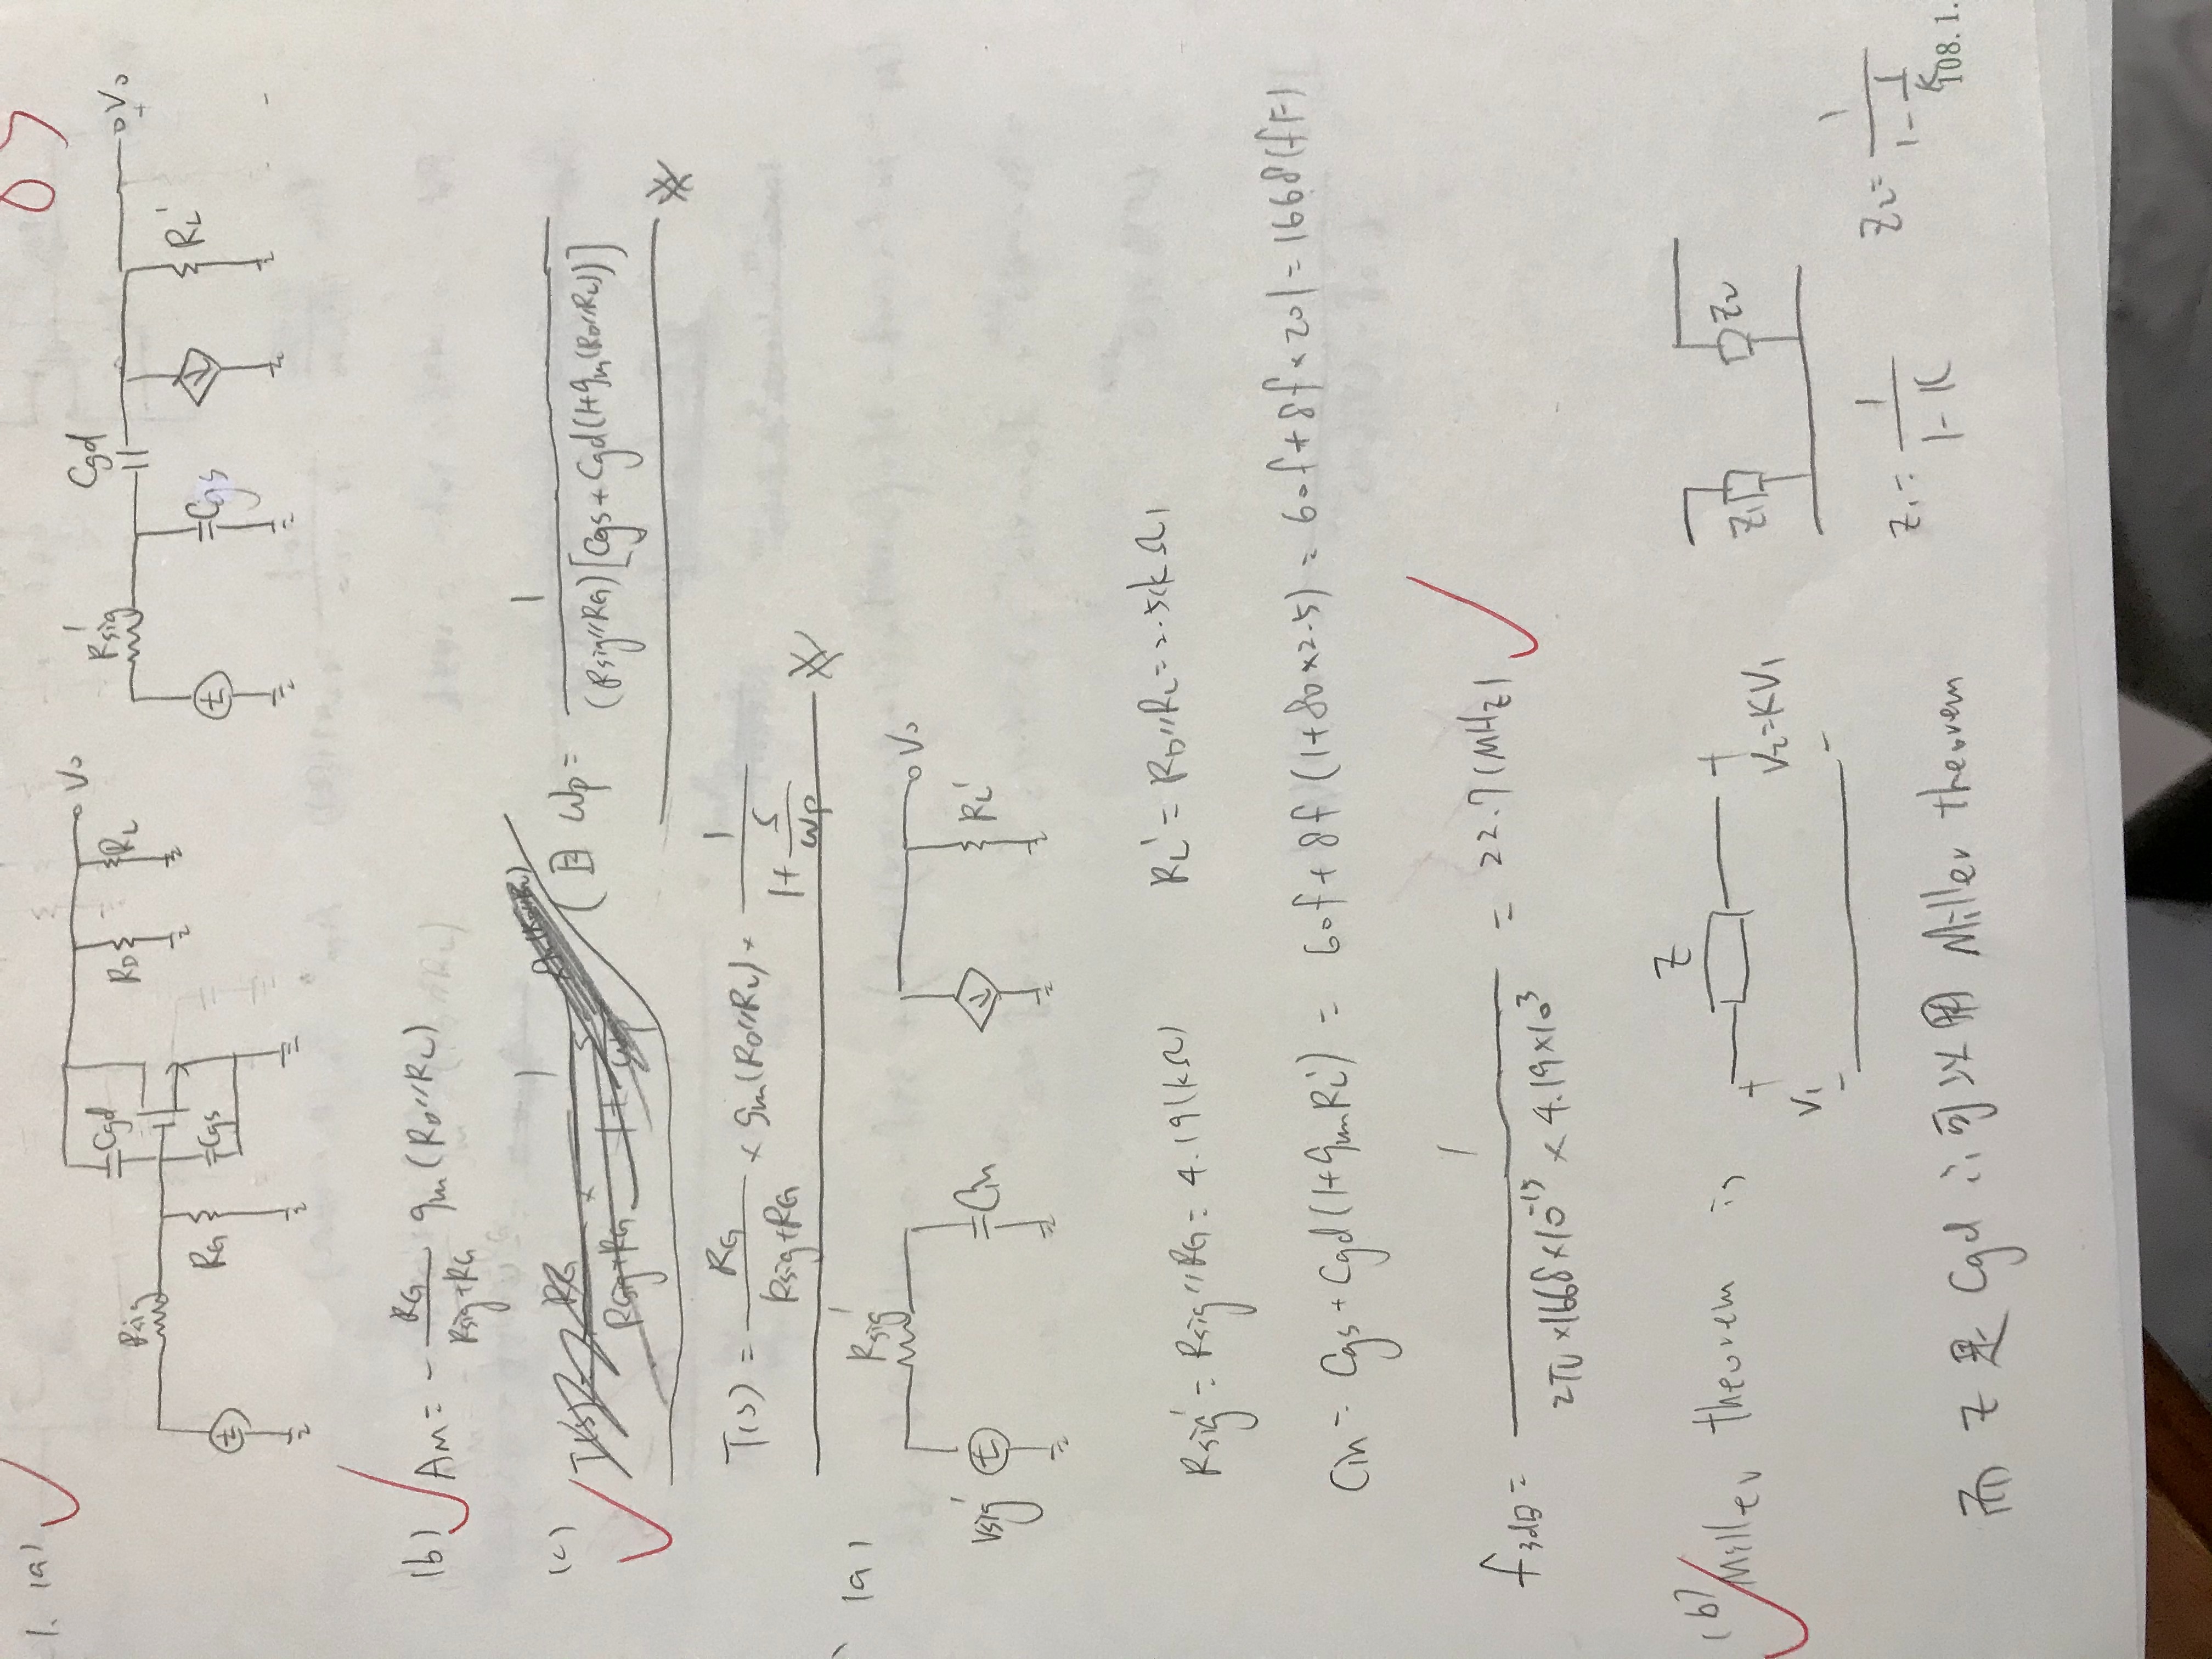 1. (a)
Rsig RG Cgd Cgs RD RL Vo
Rsig' Cgd Cgs RL' Vo
(b) AM = - RG / (Rsig+RG) gm (RD//RL)
(c) ωp = 1 / ((Rsig//RG)[Cgs+Cgd(1+gm(RD//RL))])
T(s) = RG / (Rsig+RG) × gm(RD//RL) × 1 / (1+ s/ωp)
(a)
Vsig' Rsig' Cin RL' Vo
Rsig' = Rsig//RG = 4.19(kΩ) RL' = RD//RL = 2.5(kΩ)
Cin = Cgs + Cgd(1+gmRL') = 60f + 8f (1+80×2.5) = 60f + 8f × 201 = 1668(fF)
f3dB = 1 / (2π×1668×10^-15 × 4.19×10^3) = 22.7(MHz)
(b) Miller theorem is
Z + V1 - + V2=KV1 -
Z1 Z2
Z1 = 1 / (1-K) Z2 = 1 / (1 - 1/K)
而 Z 是 Cgd ∴可以用 Miller theorem
108.1.